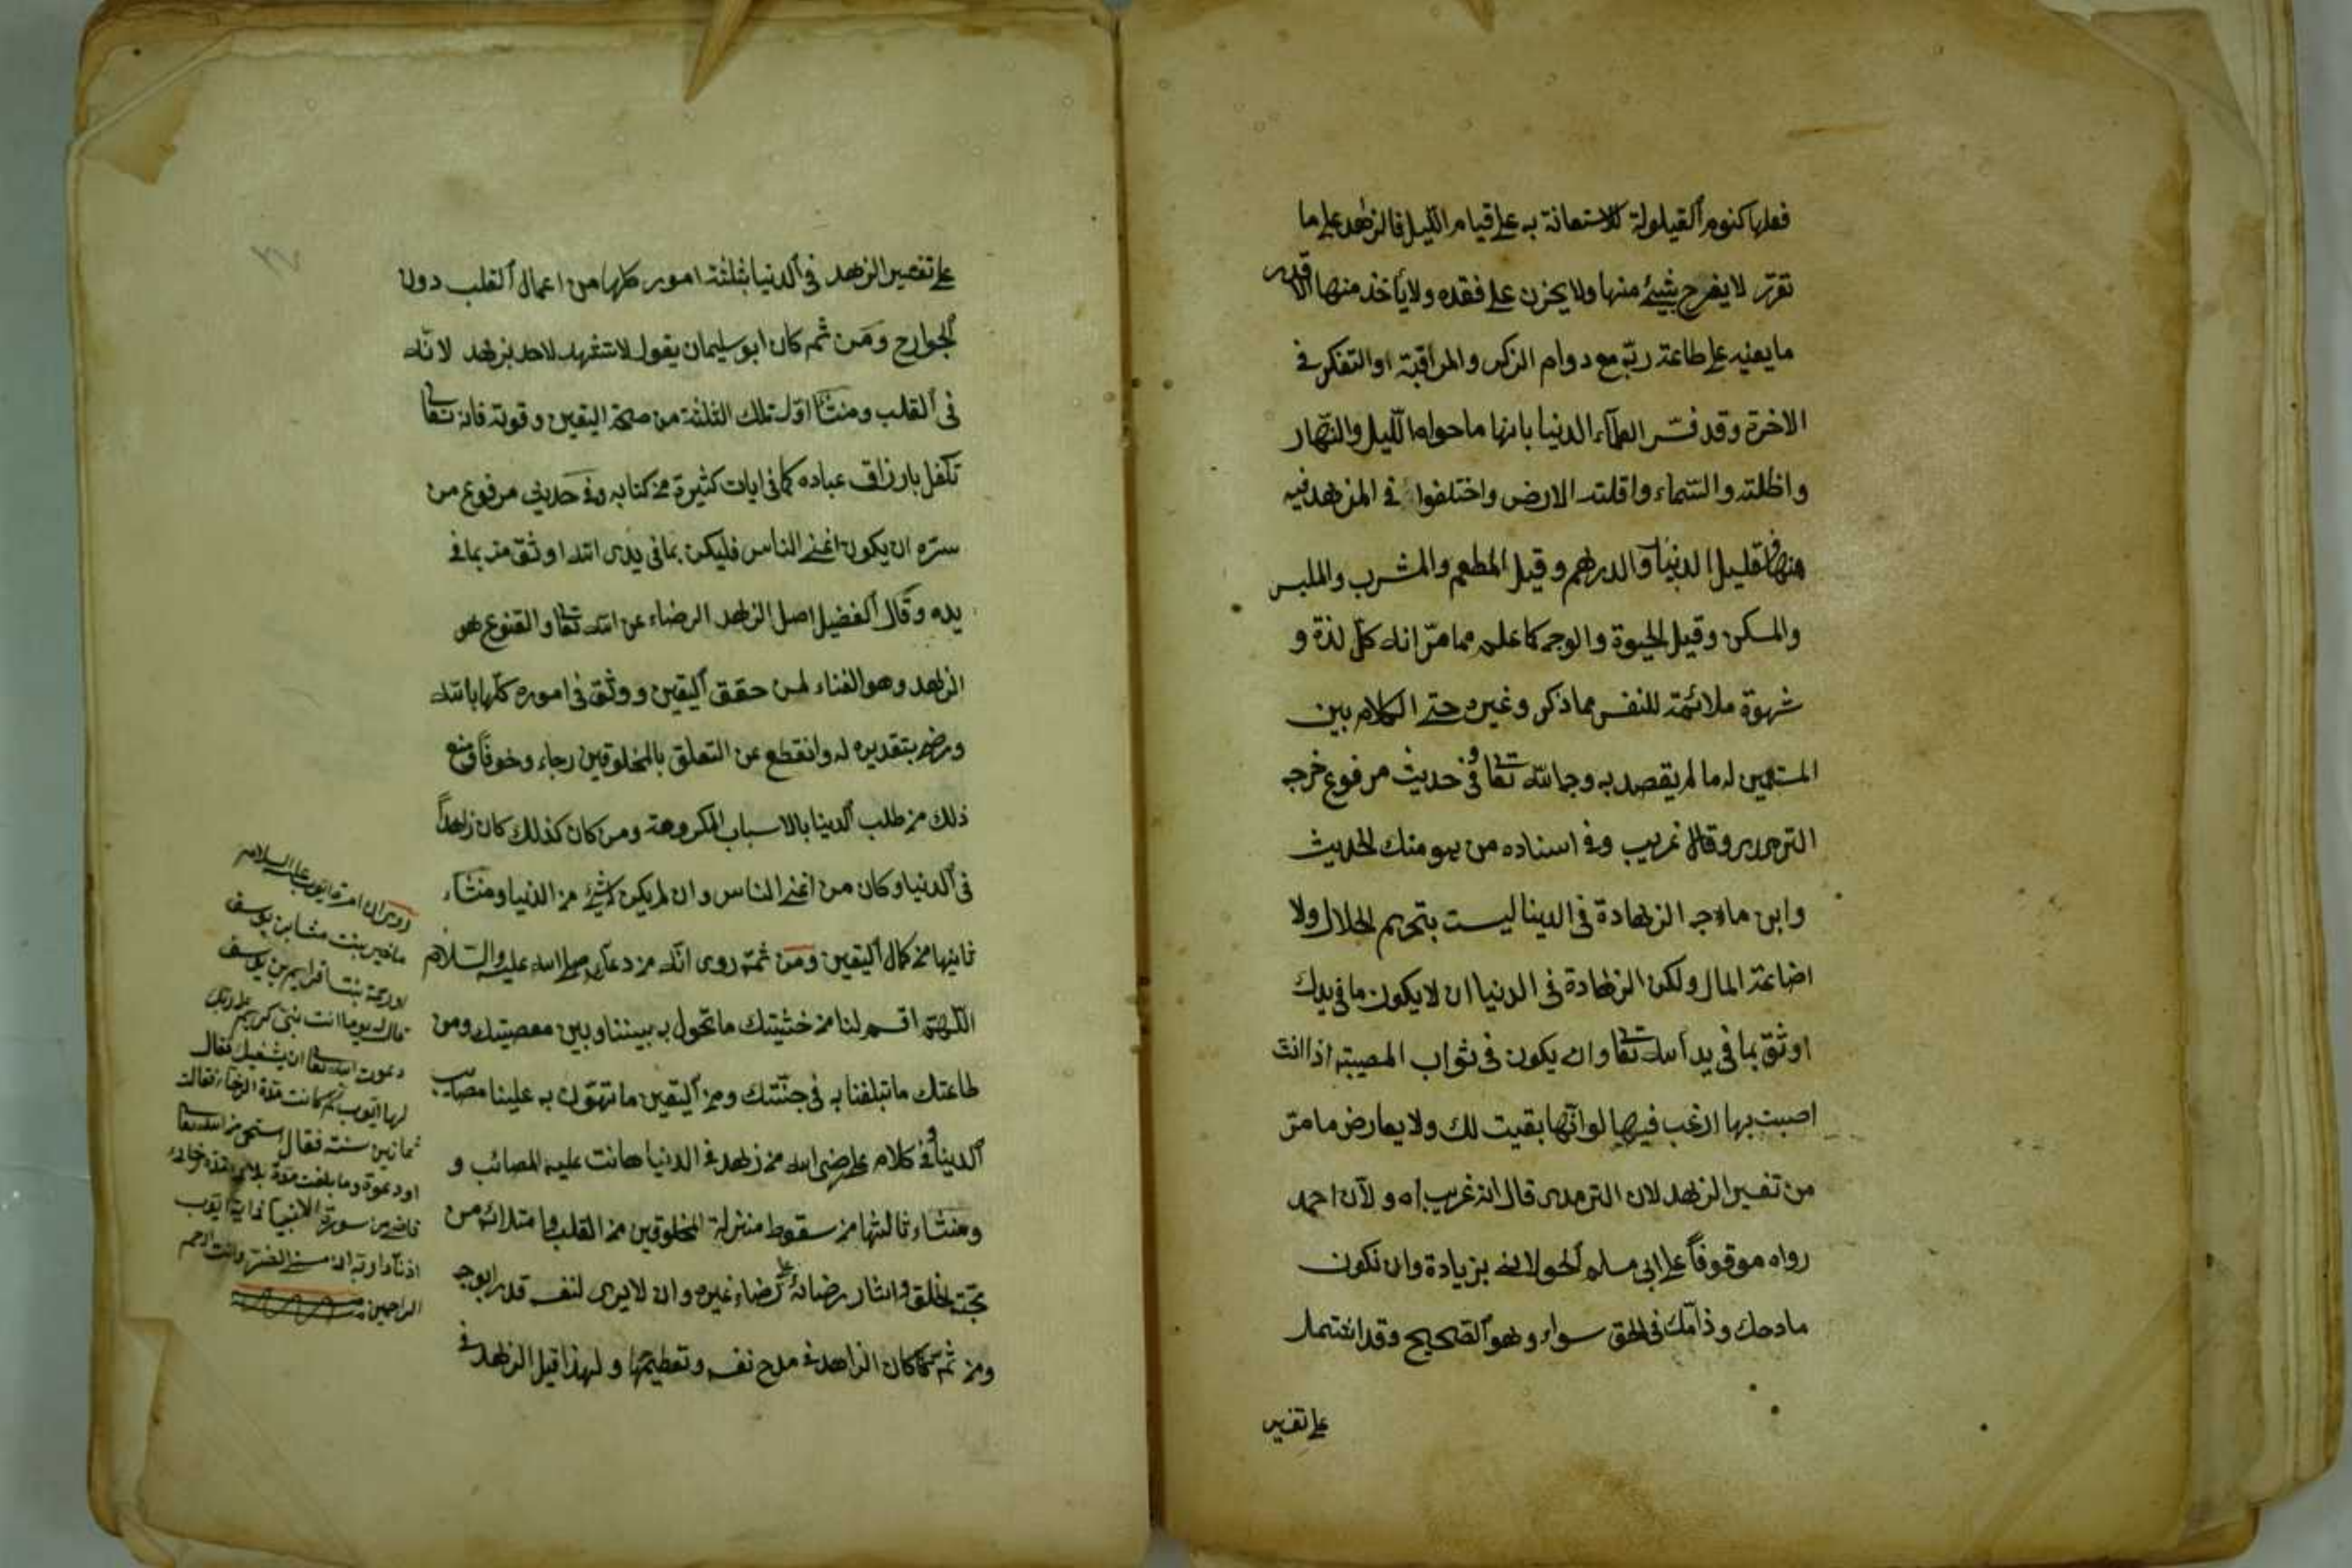 فعلها كنوم القيلولة للاستعانة به على قيام الليل فالزهد على ما
تقرر لا يفرح بشيئ منها ولا يحزن على فقده ولا يأخذ منها الا قدر
ما يعينه على طاعة ربه مع دوام الذكر والمراقبة او التفكر في
الاخرة وقد فسر العلماء الدنيا بانها ما حواه الليل والنهار
واظلته والسماء واقلته الارض واختلفوا في المزهد فيه
منها فقيل الدنيا والدرهم وقيل المطعم والمشرب والملبس
والمسكن وقيل الحيوة والوجه كما علم مما مر انه كل لذة و
شهوة ملائمة للنفس مما ذكر وغيره حتى الكلام بين
المستمعين له ما لم يقصد به وجه الله تعا وفي حديث مرفوع خرجه
الترمدى وقال غريب وفي اسناده من هو منكر الحديث
وابن ماجه الزهادة في الدينا ليست بتحريم الحلال ولا
اضاعة المال ولكن الزهادة في الدنيا ان لا يكون ما في يدك
اوثق بما في يد الله تعا وان يكون في ثواب المصيبة اذا انت
اصبت بها ارغب فيها لو انها بقيت لك ولا يعارض ما مر
من تفسير الزهد لان الترمدى قال انه غريب اه ولان احمد
رواه موقوفاً على ابي مسلم الخولاني بزيادة وان تكون
مادحك وذامك في الحق سواء وهو الصحيح وقد اشتمل
على تفسير
على تفسير الزهد في الدنيا بثلثة امور كلها من اعمال القلب دون
الجوارح ومن ثم كان ابو سليمان يقول لا تشهد لاحد بزهد لانه
في القلب ومنشأ اول تلك الثلثة من صحة اليقين وقوته فانه تعا
تكفل بارزاق عباده كما في ايات كثيرة من كتابه وفي حديث مرفوع من
سره ان يكون اغنى الناس فليكن بما في يدى الله اوثق منه بما في
يده وقال الفضيل اصل الزهد الرضاء عن الله تعا والقنوع هو
الزهد وهو الغناء لمن حقق اليقين ووثق في اموره كلها بالله
ورضى بتقديره له وانقطع عن التعلق بالمخلوقين رجاء وخوفاً ومنع
ذلك من طلب الدينا بالاسباب المكروهة ومن كان كذلك كان زهداً
في الدنيا وكان من اغنى الناس وان لم يكن له شئ من الدنيا ومنشاء
ثانيها من كمال اليقين ومن ثمة روى انه من دعائه صلى الله عليه والسلام
اللهم اقسم لنا من خشيتك ما تحول به بيننا وبين معصيتك ومن
طاعتك ما تبلغنا به في جنتك ومن اليقين ما تهون به علينا مصايب
الدينا وفي كلام على رضى الله من زهد في الدنيا هانت عليه المصائب و
ومنشاء ثالثها من سقوط منزلة المخلوقين من القلب وامتلائه من
محبة الخلق وايثار رضائه على رضاء غيره وان لا يرى لنفسه قدر ابوجه
ومن ثم كان الزاهد في مدح نفسه وتعظيمها ولهذا قيل الزهد في
روى ان امرة ايوب عليه السلام
ماخير بنت مشا بن يوسف
او رحمة بنت افرايم بن يوسف
قالت له يوما انت نبي كريم على ربك
دعوت الله تعا ان يشفيك فقال
لها ايوب كم كانت مدة الرخاء فقالت
ثمانين سنة فقال استحى من الله تعا
ادعوه وما بلغت مدة بلائى مدة رخائى
قاضى من سورة الانبياء في اية ايوب
اذ نادا ربه انى مسنى الضر وانت ارحم
الراحمين